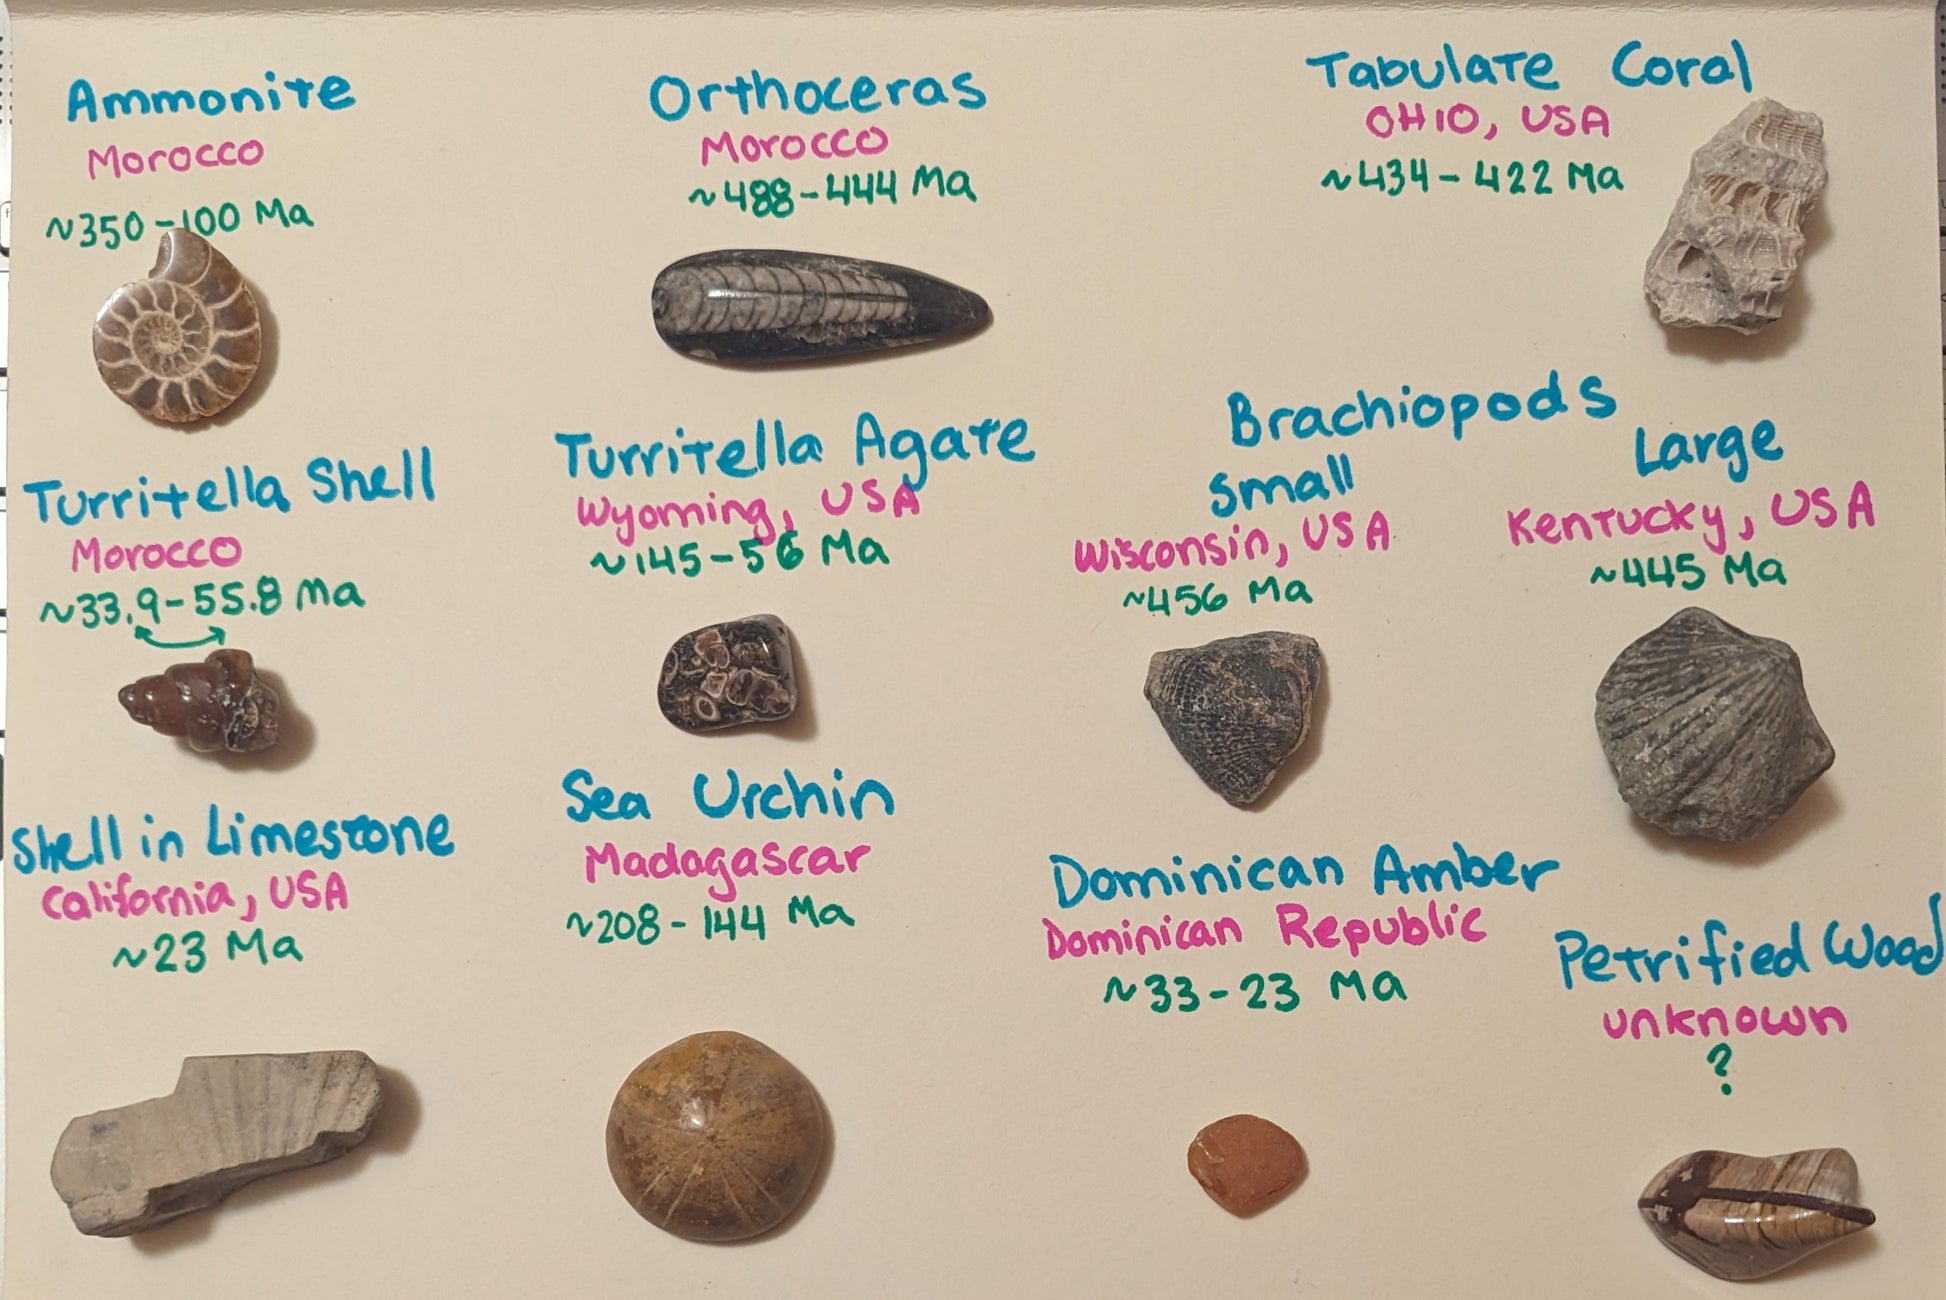 Ammonite
Morocco
~350-100 Ma
Orthoceras
Morocco
~488-444 Ma
Tabulate Coral
OHIO, USA
~434-422 Ma
Turritella Shell
Morocco
~33.9-55.8 Ma
Turritella Agate
Wyoming, USA
~145-56 Ma
Brachiopods
Small
Wisconsin, USA
~456 Ma
Large
Kentucky, USA
~445 Ma
Shell in Limestone
California, USA
~23 Ma
Sea Urchin
Madagascar
~208-144 Ma
Dominican Amber
Dominican Republic
~33-23 Ma
Petrified Wood
unknown
?